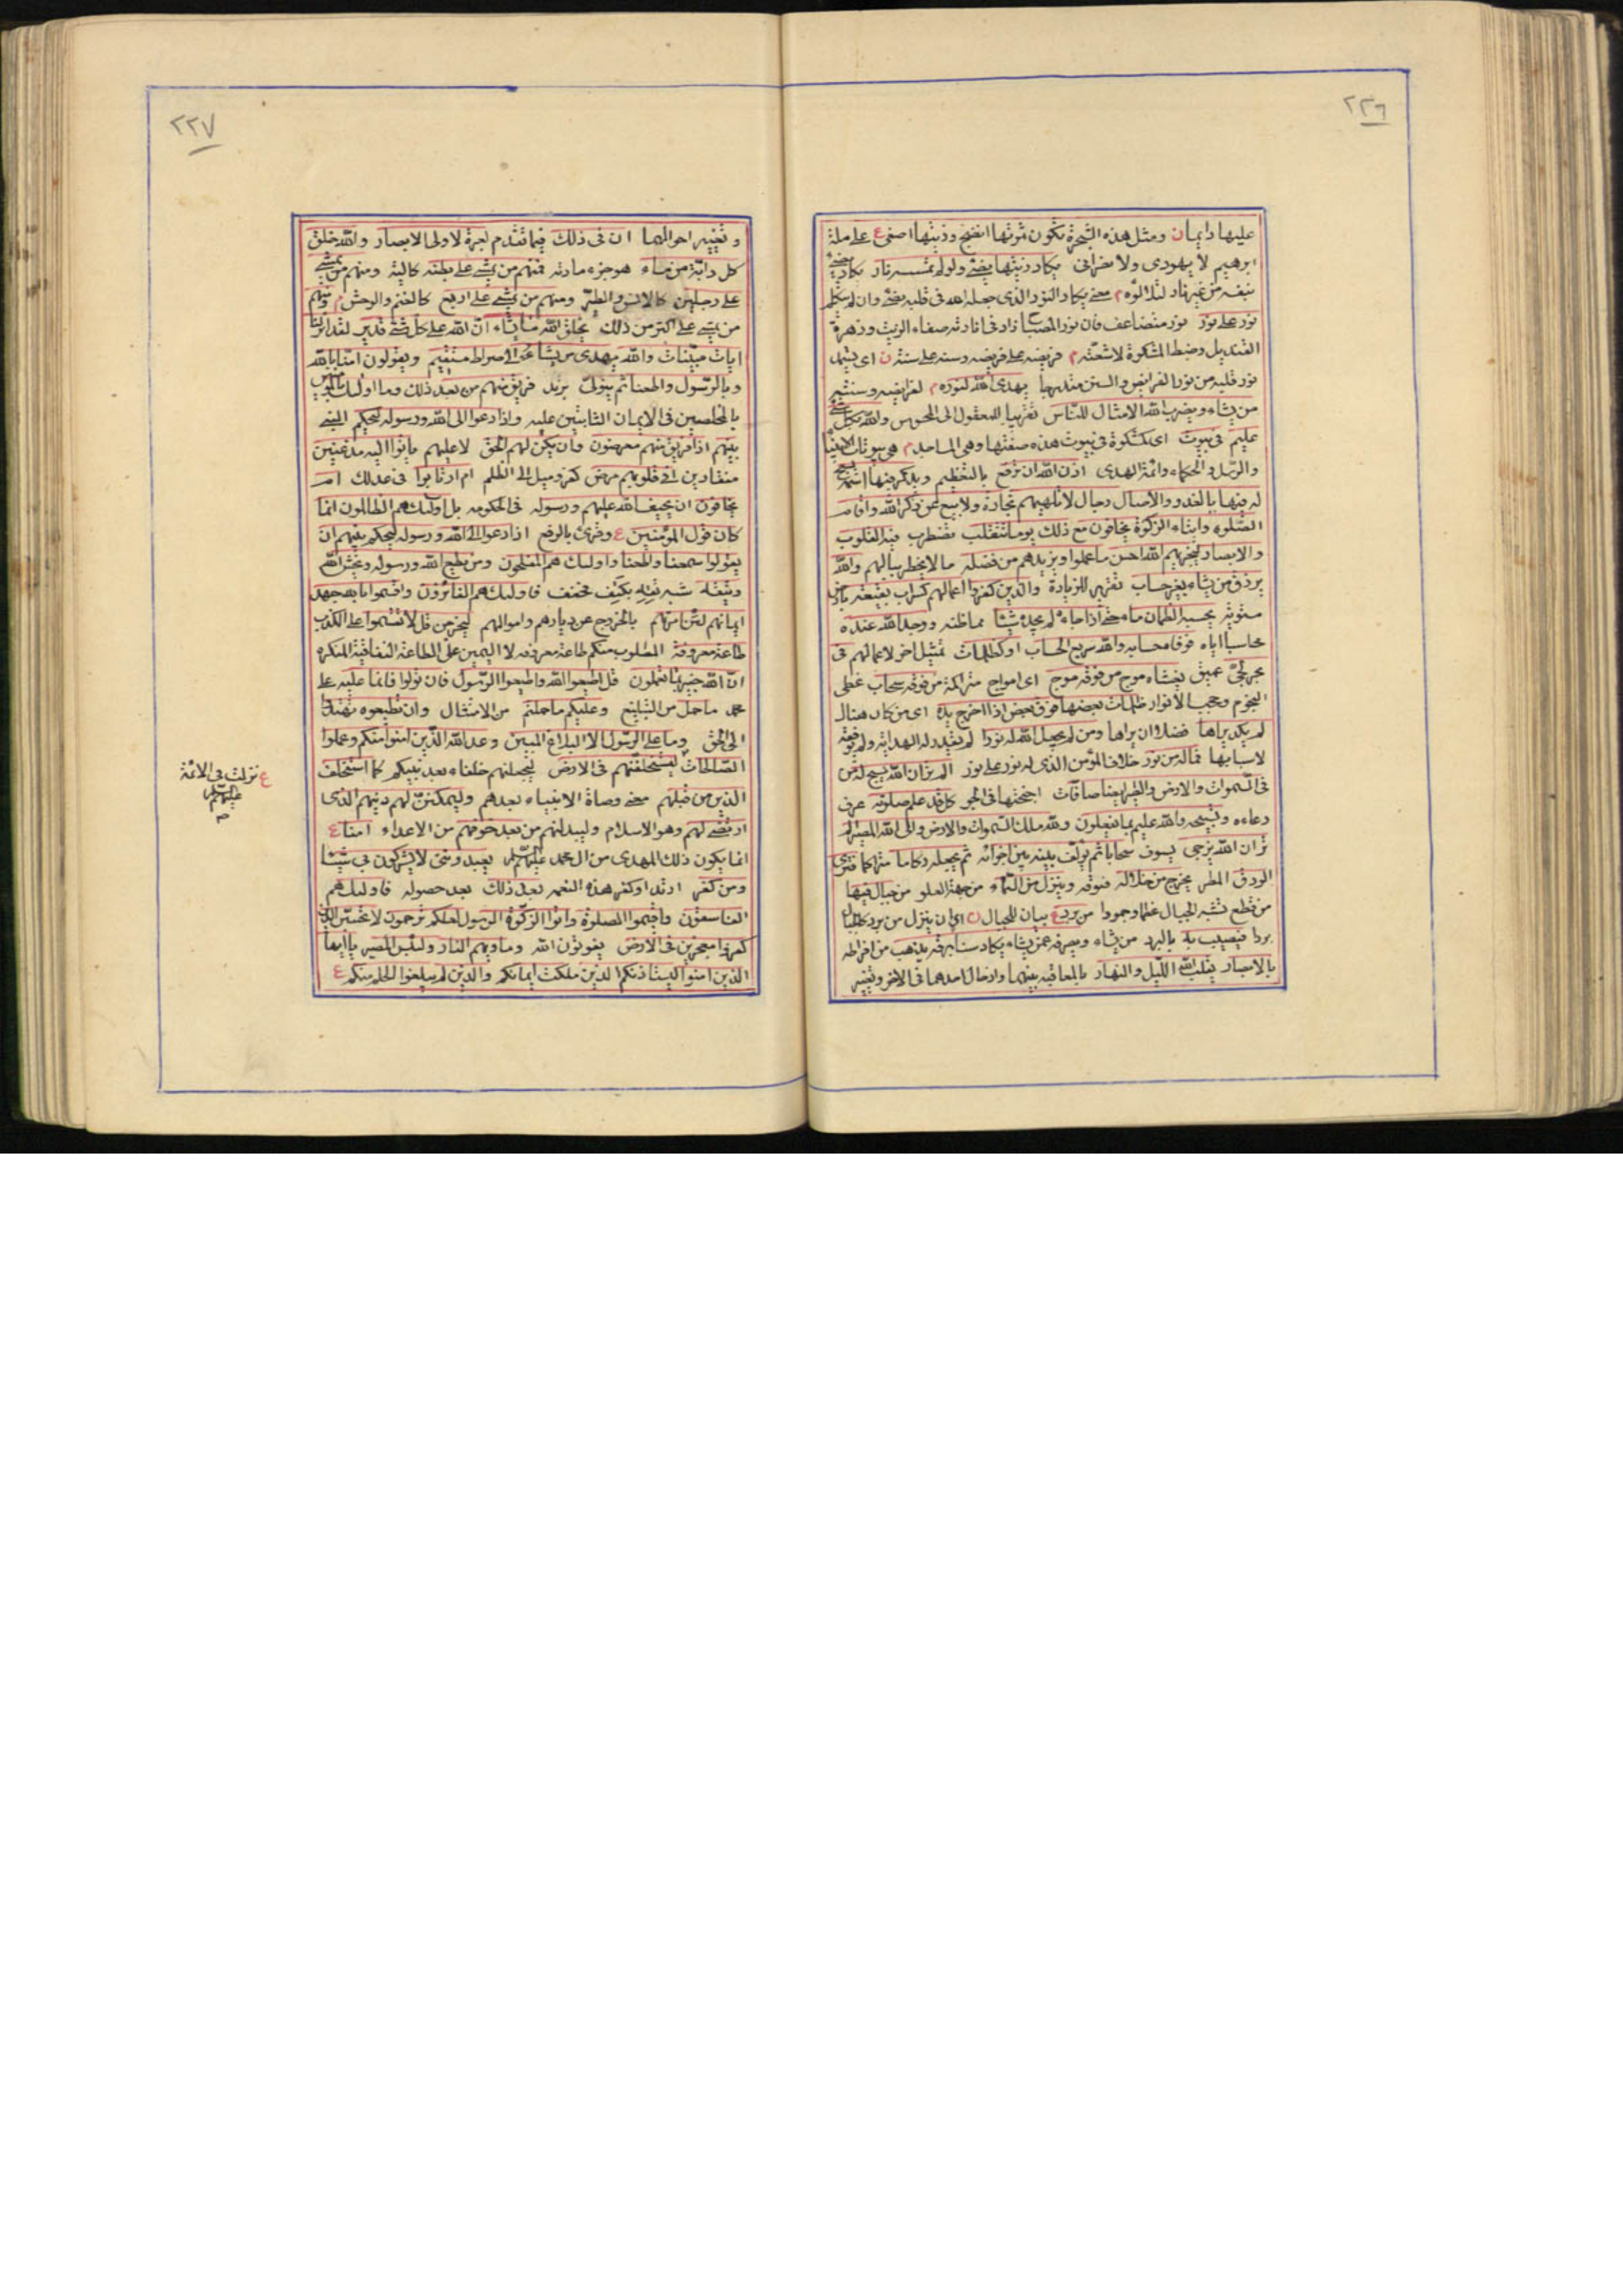 ٢٢٦
عليها دايما ن ومثل هذه الشجرة تكون ثمرتها انضج وزيتها اصفى ع على ملة
ابرهيم لا يهودى ولا نصرانى يكاد زيتها يضئ ولو لم تمسسه نار يكاد يضئ
بنفسه من غير نار لتلألؤه م معنى يكاد النور الذى جعله الله فى قلبه يضئ وان لم يتكلم
نور على نور نور متضاعف فان نور المصباح زاد فى انارته صفاء الزيت وزهرة
القنديل وضبط المشكوة لاشعته م فريضه على فريضه وسنه على سنة ن اى يستمد
نور قلبه من نور الفرايض والسنن متدبرها يهدى الله لنوره م لفرايضه وسننه
من يشاء ويضرب الله الامثال للناس تقريبا للمعقول الى المحسوس والله بكل شئ
عليم فى بيوت اى كمشكوة فى بيوت هذه صفتها وهى المساجد م هى بيوتات الانبيا
والرسل والحكماء وائمة الهدى اذن الله ان ترفع بالتعظيم ويذكر فيها اسمه يسبح
له فيها بالغدو والاصال رجال لا تلهيهم تجارة ولا بيع عن ذكر الله واقام
الصلوه وايتاء الزكوة يخافون مع ذلك يوما تتقلب تضطرب فيه القلوب
والابصار ليجزيهم الله احسن ما عملوا ويزيدهم من فضله ما لا يخطر ببالهم والله
يرزق من يشاء بغير حساب تقرير للزيادة والذين كفروا اعمالهم كسراب بقيعة بارض
مستوية يحسبه الظمان ماء حتى اذا جاءه لم يجده شيئا مما ظنه ووجد الله عنده
محاسبا اياه فوفاه حسابه والله سريع الحساب او كظلمات تمثيل اخر لاعمالهم فى
بحر لجى عميق يغشاه موج من فوقه موج اى امواج متراكمة من فوقه سحاب غطى
النجوم وحجب الانوار ظلمات بعضها فوق بعض اذا اخرج يده اى من كان هناك
لم يكد يراها فضلا ان يراها ومن لم يجعل الله له نورا لم يقدر له الهداية ولم يوفقه
لاسبابها فما له من نور خلاف المؤمن الذى له نور على نور الم تر ان الله يسبح له من
فى السموات والارض والطير ايضا صافات اجنحتها فى الجو كل قد علم صلوته عرف
دعاءه وتسبيحه والله عليم بما يفعلون ولله ملك السموات والارض والى الله المصير الم
تر ان الله يزجى يسوق سحابا ثم يؤلف بينه بين اجزائه ثم يجعله ركاما متراكما فترى
الودق المطر يخرج من خلاله فتوقه وينزل من السماء من جهة العلو من جبال فيها
من قطع تشبه الجبال عظما وجمودا من برد ع بيان للجبال ن اى ان ينزل من برد
بردا فيصيب به بالبرد من يشاء ويصرفه عمن يشاء يكاد سنا برقه يذهب من افراطه
بالابصار يقلب الله الليل والنهار بالمعاقبة بينهما وادخال احدهما فى الاخر وتغيير
٢٢٧
وتغيير احوالهما ان فى ذلك فيما تقدم لعبرة لاولى الابصار والله خلق
كل دابة من ماء هو جزء مادته فمنهم من يمشى على بطنه كالحية ومنهم من يمشى
على رجلين كالانس والطير ومنهم من يمشى على اربع كالغنم والوحش م ومنهم
من يمشى على اكثر من ذلك يخلق الله ما يشاء ان الله على كل شئ قدير لقد انزلنا
ايات مبينات والله يهدى من يشاء الى صراط مستقيم ويقولون امنا بالله
وبالرسول واطعنا ثم يتولى فريق منهم من بعد ذلك وما اولئك بالمؤمنين
بالمخلصين فى الايمان الثابتين عليه واذا دعوا الى الله ورسوله ليحكم النبى
بينهم اذا فريق منهم معرضون وان يكن لهم الحق لا عليهم ياتوا اليه مذعنين
منقادين افى قلوبهم مرض كفر وميل الى الظلم ام ارتابوا فى عدلك ام
يخافون ان يحيف الله عليهم ورسوله فى الحكومه بل اولئك هم الظالمون انما
كان قول المؤمنين ع وقرئ بالرفع اذا دعوا الى الله ورسوله ليحكم بينهم ان
يقولوا سمعنا واطعنا واولئك هم المفلحون ومن يطع الله ورسوله ويخش الله
ويتقه شبه تقه بكتف مخفف فاولئك هم الفائزون واقسموا بالله جهد
ايمانهم لئن امرتهم بالخروج عن ديارهم واموالهم ليخرجن قل لا تقسموا على الكذب
طاعة معروفة المطلوب منكم طاعة معروفه لا اليمين على الطاعة النفاقية المنكره
ان الله خبير بما تعملون قل اطيعوا الله واطيعوا الرسول فان تولوا فانما عليه على
محمد ما حمل من التبليغ وعليكم ما حملتم من الامتثال وان تطيعوه تهتدوا
الى الحق وما على الرسول الا البلاغ المبين وعد الله الذين امنوا منكم وعملوا
الصالحات ليستخلفنهم فى الارض ليجعلنهم خلفاء بعد نبيكم كما استخلف
الذين من قبلهم معنى وصاة الانبياء بعدهم وليمكنن لهم دينهم الذى
ارتضى لهم وهو الاسلام وليبدلنهم من بعد خوفهم من الاعداء امنا ع
انما يكون ذلك المهدى من ال محمد عليهم السلم يعبدوننى لا يشركون بى شيئا
ومن كفر ارتد او كفر هذه النعمه بعد ذلك بعد حصوله فاولئك هم
الفاسقون واقيموا الصلوة واتوا الزكوة الرسول لعلكم ترحمون لا تحسبن الذين
كفروا معجزين فى الارض يفوتون الله وماويهم النار ولبئس المصير يا ايها
الذين امنوا ليستاذنكم الذين ملكت ايمانكم والذين لم يبلغوا الحلم منكم ع
ع نزلت فى الائمة
عليهم السلم
م